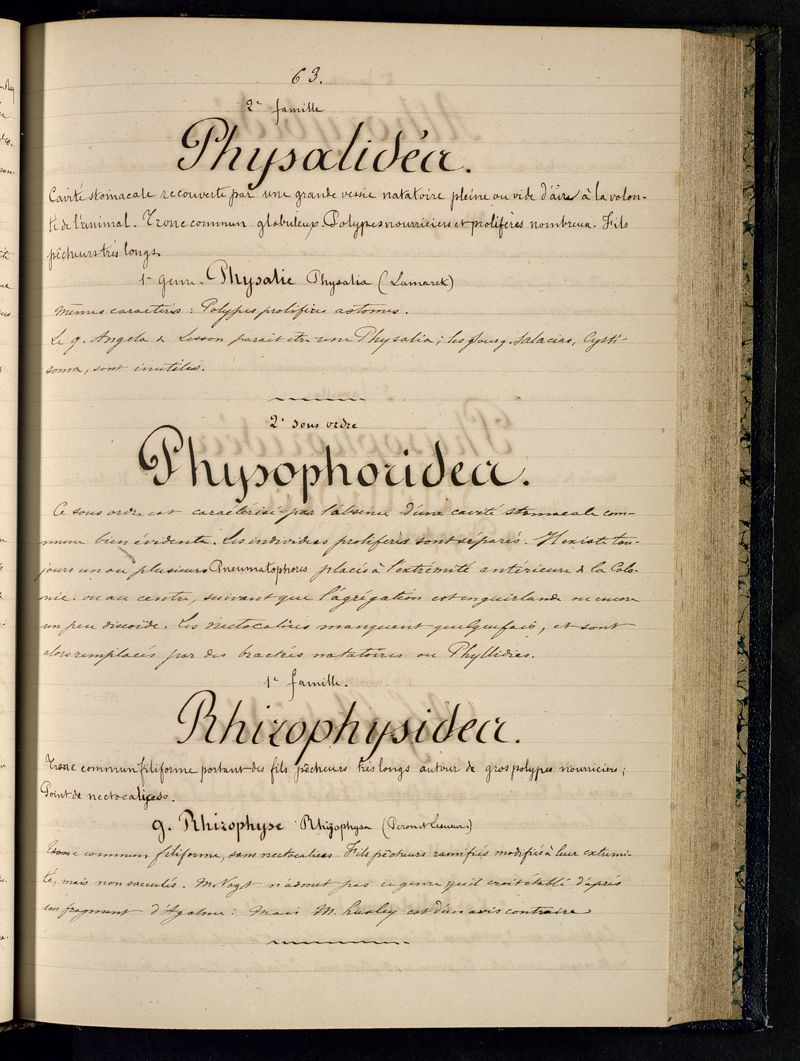 63.
2e famille
Physalidéa.
Cavité stomacale recouverte par une grande vessie natatoire pleine ou vide d'air à la volon-
té de l'animal. Tronc commun globuleux. Polypes nourriciers et prolifères nombreux. Fils
pêcheurs très longs.
1er genre. Physalie Physalia (Lamarck)
mêmes caractères : Polypes prolifères astomes.
Le g. Angela de Lesson parait etre une Physalia ; les Salacias, Cysti-
soma, sont inutiles.
2e sous ordre
Physophoridea.
Ce sous ordre est caractérisé par l'absence d'une cavité stomacale com-
mune bien évidente. Les individus prolifères sont séparés. Il existe tou-
jours un ou plusieurs Pneumatophores placés à l'extrémité antérieure de la Colo-
nie. ou au centre, suivant que l'agrégation est en guirlande ou encore
un peu discoïde. Les nectocalices manquent quelquefois, et sont
alors remplacés par des bractées natatoires ou Phyllidies.
1e famille.
Rhizophysidea.
Tronc commun filiforme portant des fils pêcheurs très longs autour de gros polypes nourriciers ;
Point de nectocalices.
g. Rhizophyse Rhizophysa (Peron et Lesueur.)
Tronc commun filiforme, sans nectocalices. Fils pêcheurs ramifiés modifiés à leur extrémi-
té, mais non sacculés. M. Vogt n'admet pas ce genre qu'il croit établi d'après
un fragment d'Agalme : mais M. Huxley est d'un avis contraire